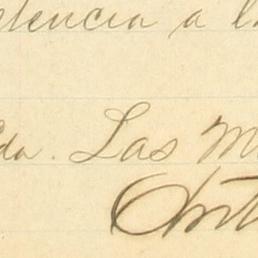 etencia a l
da. Las M
Ant